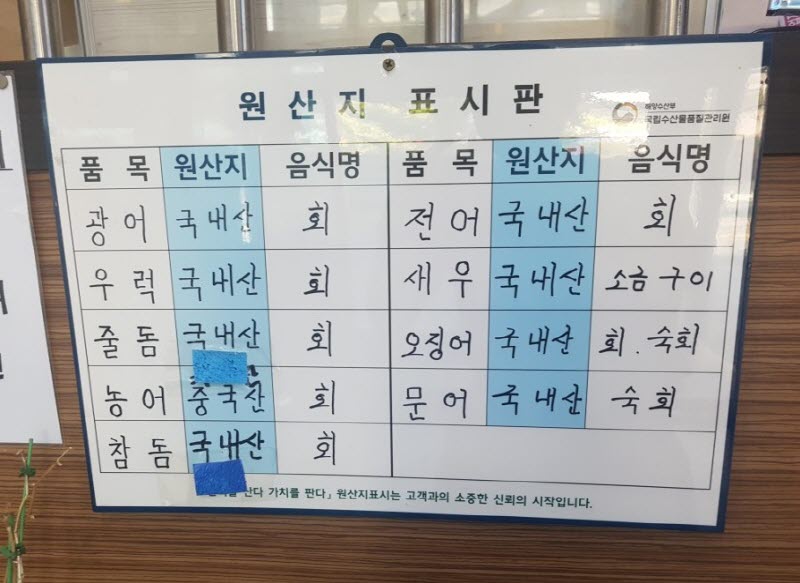 원산지 표시판
해양수산부
국립수산물품질관리원
품목 원산지 음식명 품목 원산지 음식명
광어 국내산 회 전어 국내산 회
우럭 국내산 회 새우 국내산 소금구이
줄돔 국내산 회 오징어 국내산 회.숙회
농어 중국산 회 문어 국내산 숙회
참돔 국내산 회
산다 가치를 판다」 원산지표시는 고객과의 소중한 신뢰의 시작입니다.